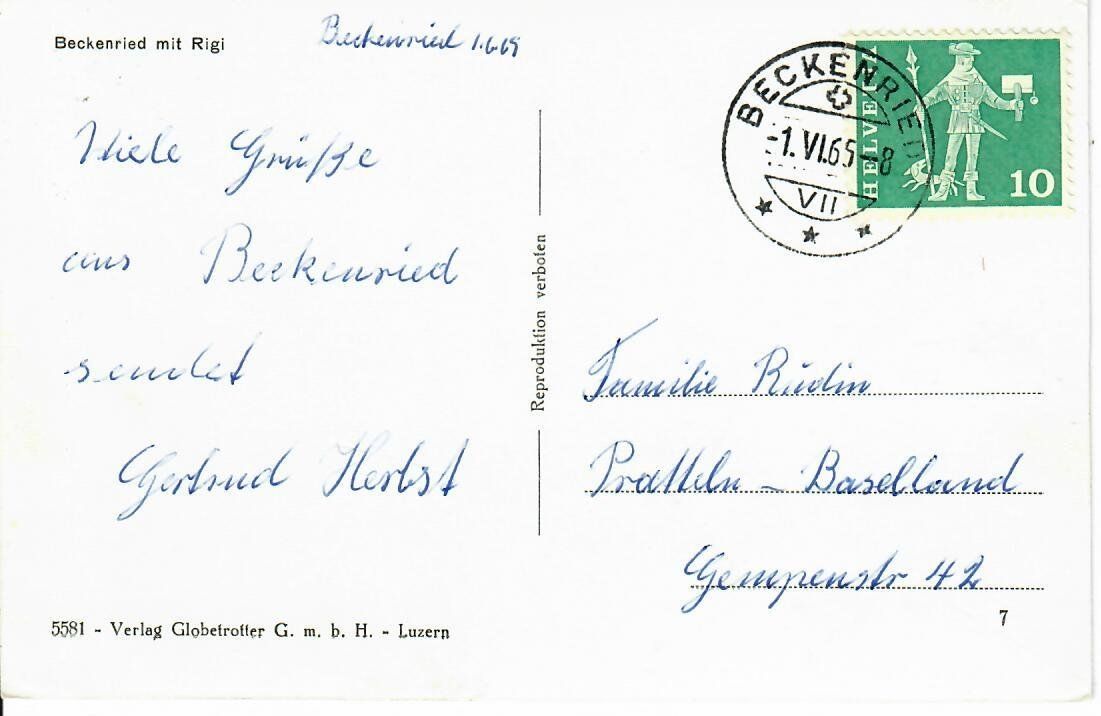 Beckenried mit Rigi
Beckenried 1.6.65
Viele Grüße
aus Beckenried
sendet
Gertrud Herbst
5581 - Verlag Globetrotter G. m. b. H. - Luzern
Reproduktion verboten
BECKENRIED
-1.VI.65-8
VII
HELVETIA
10
Familie Rudin
Pratteln - Baselland
Gempenstr 42
7